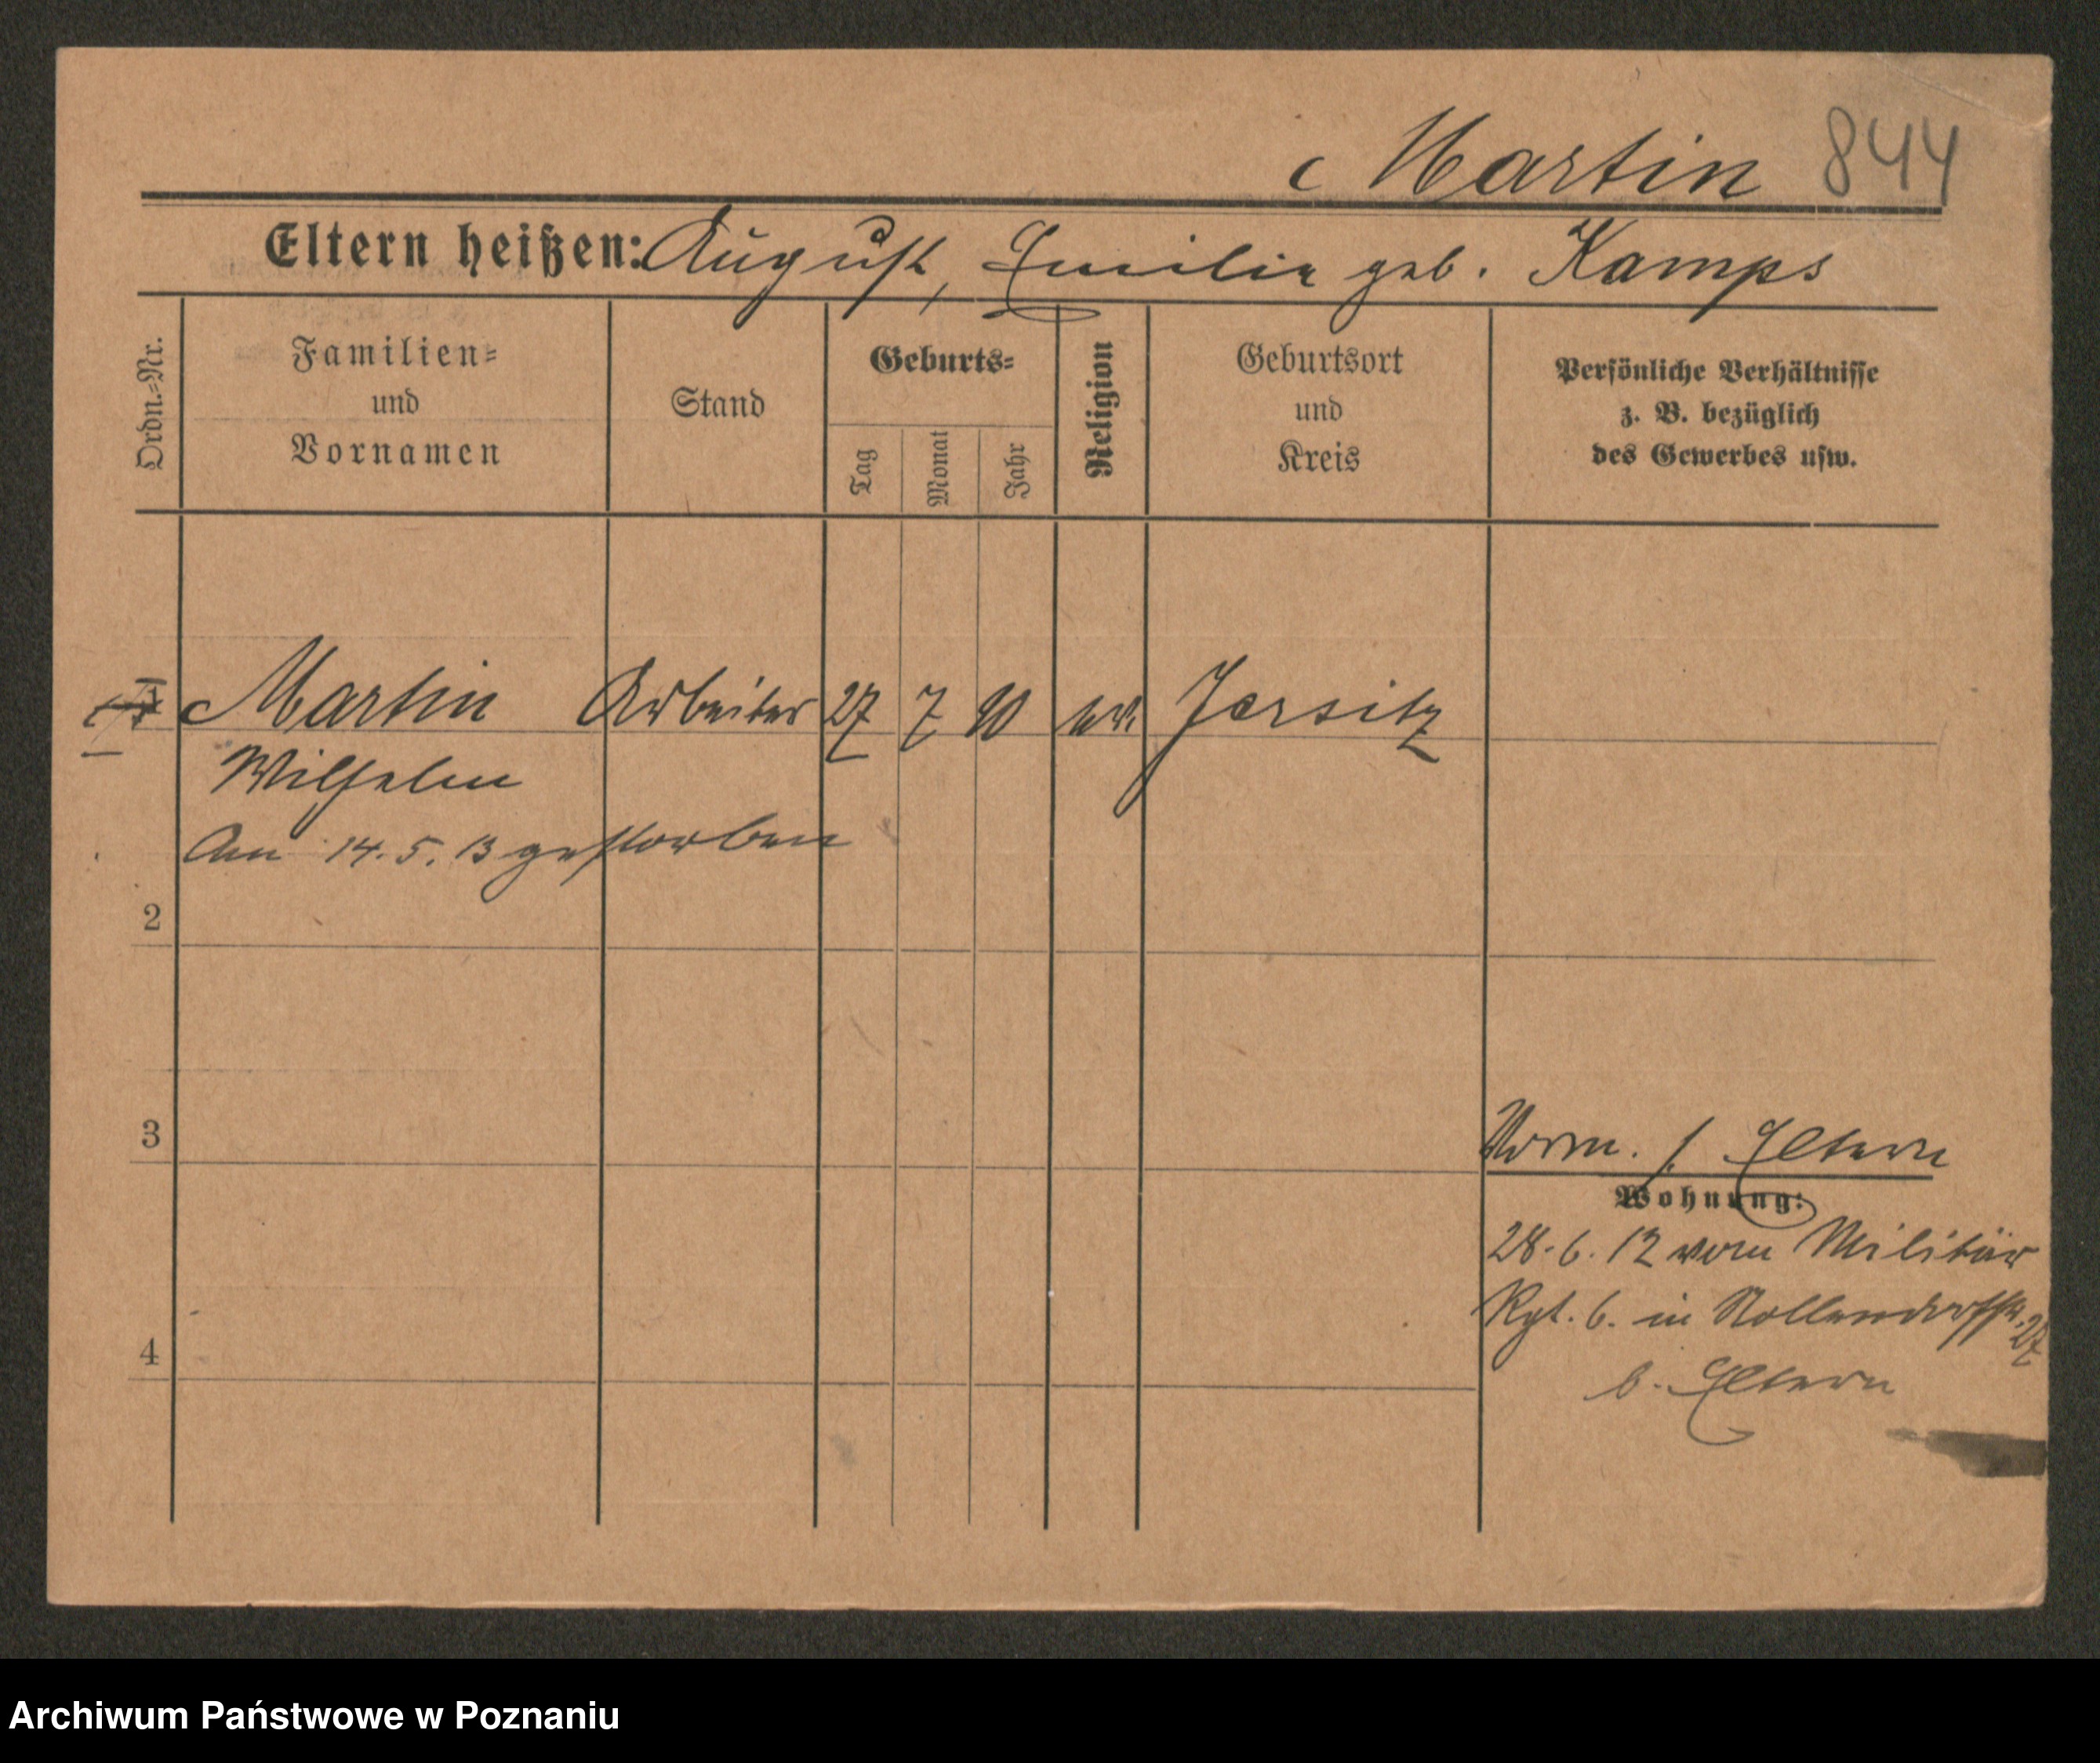 Martin 844
Eltern heißen: August, Emilie geb. Kamps
Ordn.-Nr.
Familien-
und
Vornamen
Stand
Geburts-
Tag
Monat
Jahr
Religion
Geburtsort
und
Kreis
Persönliche Verhältnisse
z. B. bezüglich
des Gewerbes usw.
Martin Arbeiter 27 7 90 ev. Jersitz
Wilhelm
Am 14.5.13 gestorben
2
3
4
Vorm. f. Eltern
Wohnung:
28.6.12 vom Militär
Rgt. 6. in Nollendorfstr. 27
b. Eltern
Archiwum Państwowe w Poznaniu